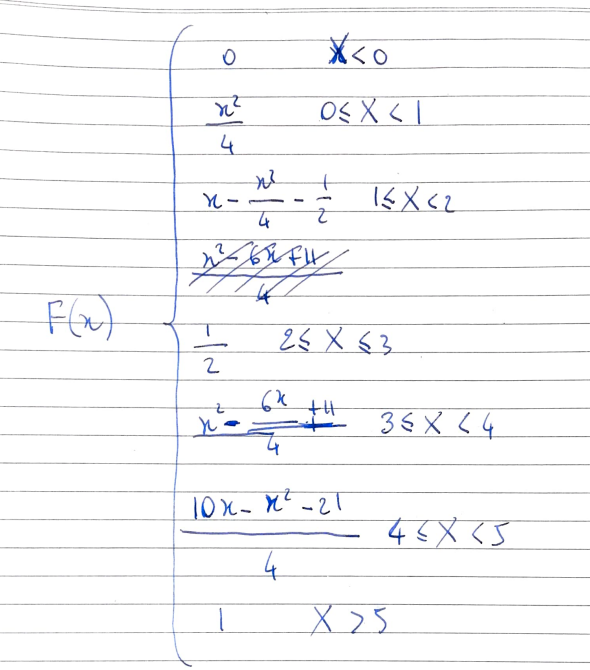 0 X < 0
x²/4 0 ≤ X < 1
x - x²/4 - 1/2 1 ≤ X < 2
x² - 6x + 11/4
F(x)
1/2 2 ≤ X ≤ 3
x² - 6x + 11/4 3 ≤ X < 4
10x - x² - 21/4 4 ≤ X < 5
1 X > 5